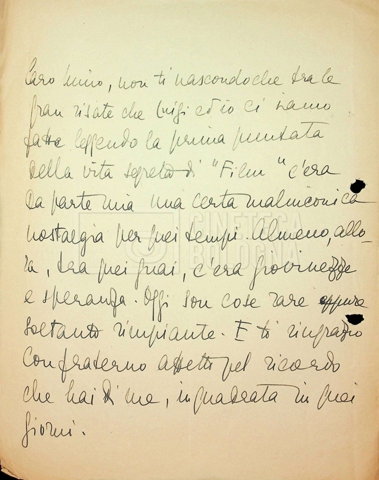 Caro Mino, non ti nascondo che tra le
gran risate che Luigi ed io ci siamo
fatte leggendo la prima puntata
della vita segreta di "Film" c'era
da parte mia una certa malinconica
nostalgia per quei tempi. Almeno, allo-
ra, tra quei guai, c'era giovinezza
e speranza. Oggi son cose rare oppure
soltanto rimpiante. E ti ringrazio
con fraterno affetto pel ricordo
che hai di me, inquadrata in quei
giorni.
CINETECA
BOLOGNA